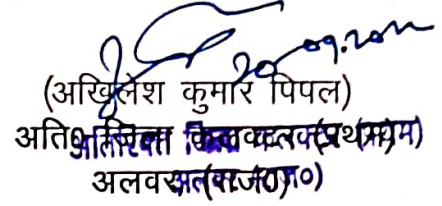 20.09.2011
(अखिलेश कुमार पिपल)
अति० जिला कलक्टर (प्रथम)
अलवर (राज०)